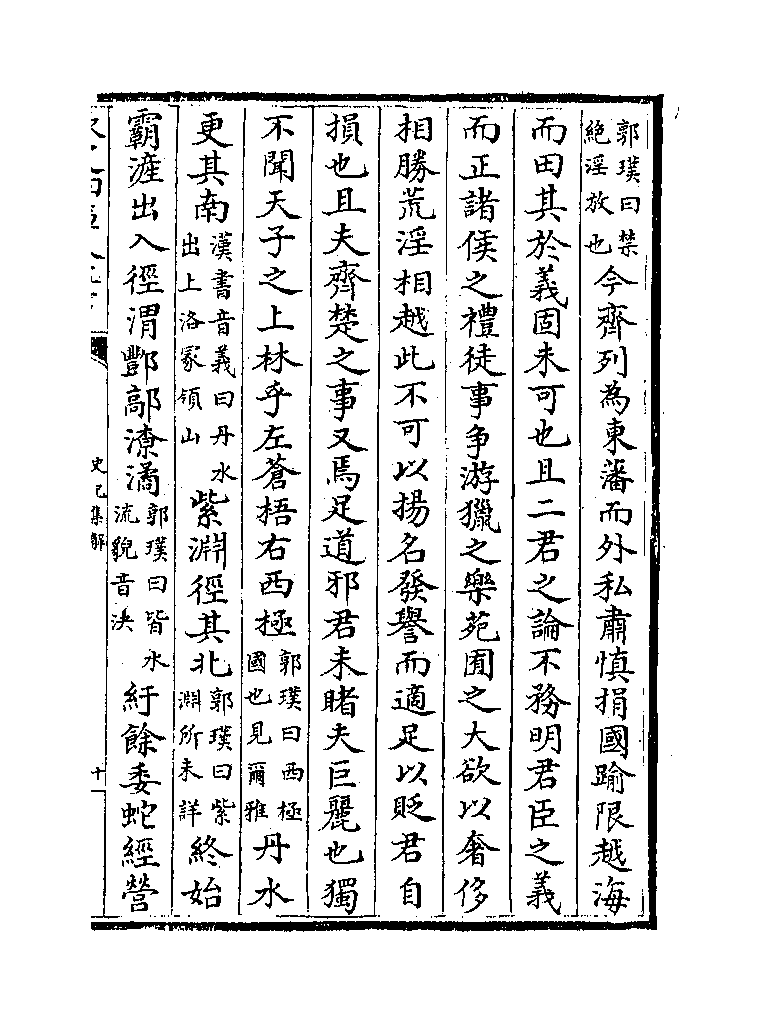 郭璞曰禁絶淫放也今齊列為東藩而外私肅慎捐國踰限越海
而田其於義固未可也且二君之論不務明君臣之義
而正諸侯之禮徒事爭游獵之樂苑囿之大欲以奢侈
相勝荒淫相越此不可以揚名發譽而適足以貶君自
損也且夫齊楚之事又焉足道邪君未睹夫巨麗也獨
不聞天子之上林乎左蒼梧右西極郭璞曰西極國也見爾雅丹水
更其南漢書音義曰丹水出上洛冢領山紫淵徑其北郭璞曰紫淵所未詳終始
霸滻出入徑渭酆鄗潦潏郭璞曰皆水流貌音決紆餘委蛇經營
史記集解
十一